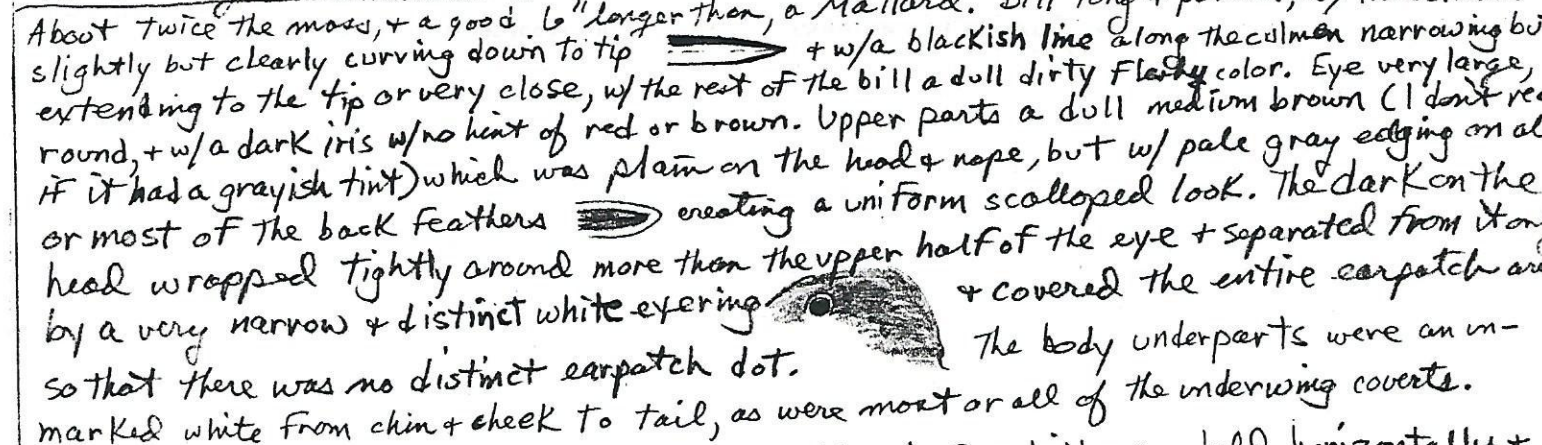 About twice the mass, + a good 6" longer than, a Mallard. Bill long +
slightly but clearly curving down to tip + w/a blackish line along the culmen narrowing bu
extending to the tip or very close, w/ the rest of the bill a dull dirty fleshy color. Eye very large,
round, + w/a dark iris w/no hint of red or brown. Upper parts a dull medium brown (I don't re
if it had a grayish tint) which was plain on the head + nape, but w/ pale gray edging on al
or most of the back feathers creating a uniform scalloped look. The dark on the
head wrapped tightly around more than the upper half of the eye + separated from it on
by a very narrow + distinct white eyering + covered the entire earpatch are
so that there was no distinct earpatch dot. The body underparts were an un-
marked white from chin + cheek to tail, as were most or all of the underwing coverts.
horizontally +